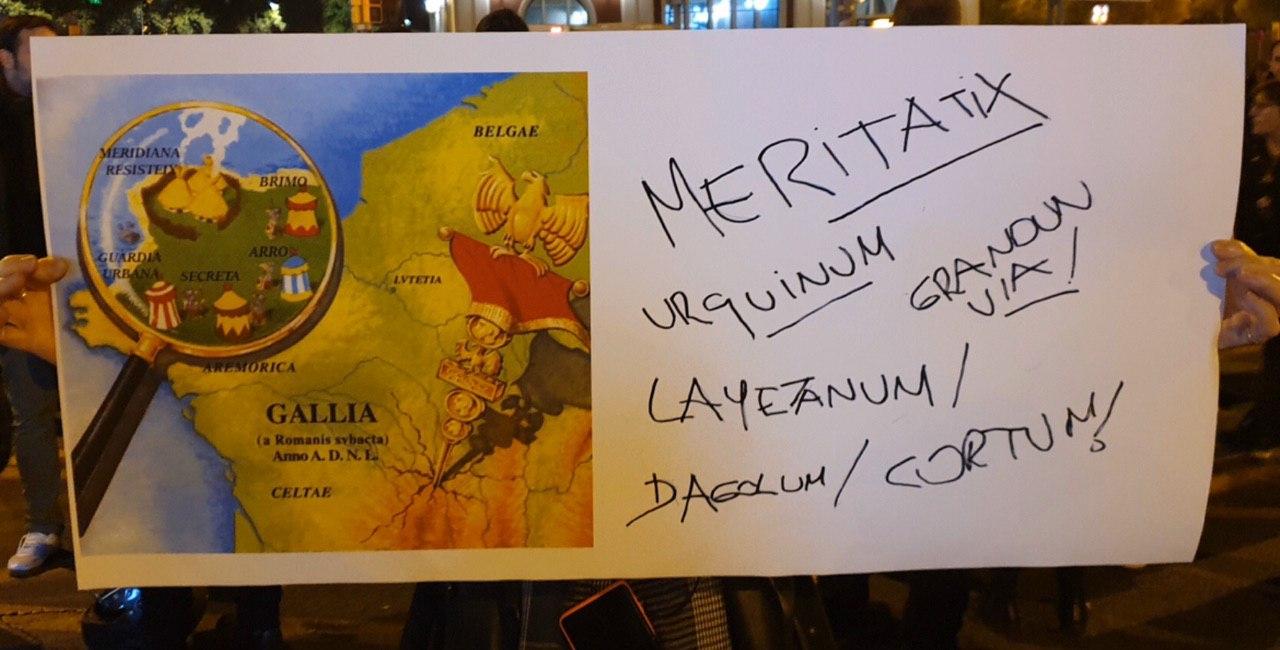 MERIDIANA
RESISTEIX
BRIMO
GUARDIA
URBANA
SECRETA
ARRO
BELGAE
LVTETIA
AREMORICA
GALLIA
(a Romanis svbacta)
Anno A. D. N. L.
CELTAE
MERITATIX
URQUINUM
GRANOUN
VIA!
LAYETANUM/
DAGOLUM/ CORTUM!